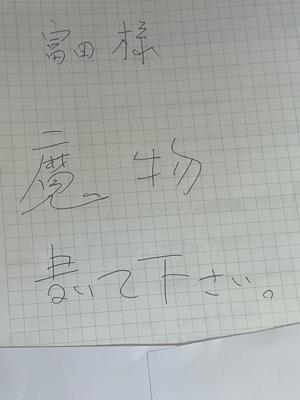 富田様
魔物
書いて下さい。